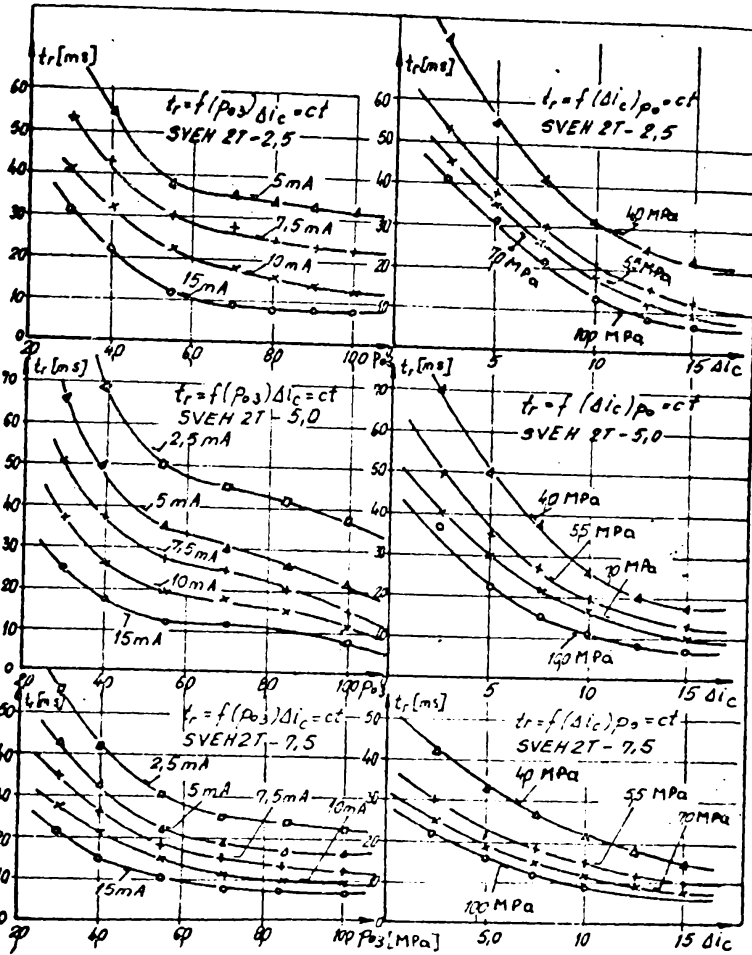 tr[ms]
60
50
40
30
20
10
0
tr=f(po3)Δic=ct
SVEH 2T-2,5
5mA
7,5mA
10mA
15mA
20
40
60
80
100 po3
tr[ms]
60
50
40
30
20
10
tr=f(Δic)po=ct
SVEH 2T-2,5
40 MPa
55 MPa
70 MPa
100 MPa
5
10
15 Δic
tr[ms]
70
60
50
40
30
20
10
0
tr=f(po3)Δic=ct
SVEH 2T-5,0
2,5mA
5mA
7,5mA
10mA
15mA
20
40
60
80
100 po3
tr[ms]
70
60
50
40
30
20
10
tr=f(Δic)po=ct
SVEH 2T-5,0
40 MPa
55 MPa
70 MPa
100 MPa
5
10
15 Δic
tr[ms]
50
40
30
20
10
0
tr=f(po3)Δic=ct
SVEH2T-7,5
2,5mA
5mA
7,5mA
10mA
15mA
20
40
60
80
100 po3[MPa]
tr[ms]
50
40
30
20
10
0
tr=f(Δic)po=ct
SVEH 2T-7,5
40 MPa
55 MPa
70 MPa
100 MPa
5,0
10
15 Δic